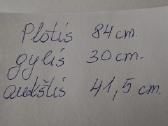 Plotis 84 cm.
gylis 30 cm.
aukštis 41,5 cm.